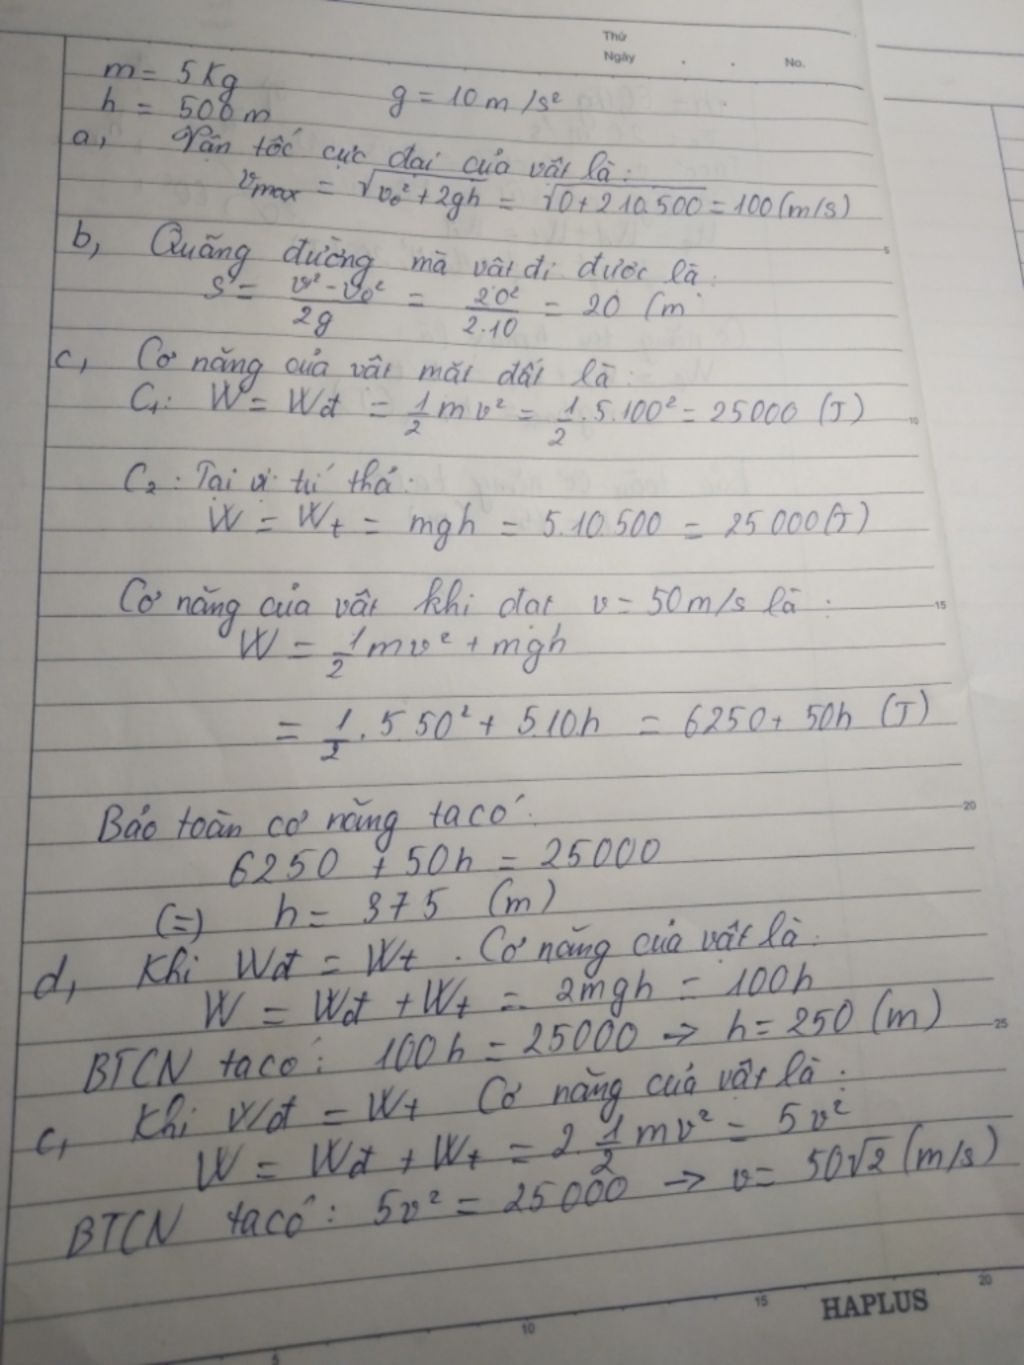 Thứ
Ngày . . No.
m = 5 Kg
h = 500 m g = 10 m /s²
a, Vận tốc cực đại của vật là:
vmax = √v₀² + 2gh = √0 + 2.10.500 = 100 (m/s)
b, Quãng đường mà vật đi được là:
S = v² - v₀² / 2g = 20² / 2.10 = 20 (m
c, Cơ năng của vật mặt đất là:
C₁: W = Wđ = 1/2 m v² = 1/2 . 5 . 100² = 25000 (J)
C₂ : Tại vị trí thả:
W = Wt = mgh = 5.10.500 = 25000 (J)
Cơ năng của vật khi đạt v = 50 m/s là :
W = 1/2 mv² + mgh
= 1/2 . 5 50² + 5.10.h = 6250 + 50h (J)
Bảo toàn cơ năng ta có:
6250 + 50h = 25000
(=) h = 375 (m)
d, Khi Wđ = Wt . Cơ năng của vật là:
W = Wđ + Wt = 2mgh = 100h
BTCN ta có: 100h = 25000 → h = 250 (m)
c, Khi Wđ = Wt Cơ năng của vật là :
W = Wđ + Wt = 2. 1/2 mv² = 5v²
BTCN ta có: 5v² = 25000 → v = 50√2 (m/s)
5 10 15 20
HAPLUS